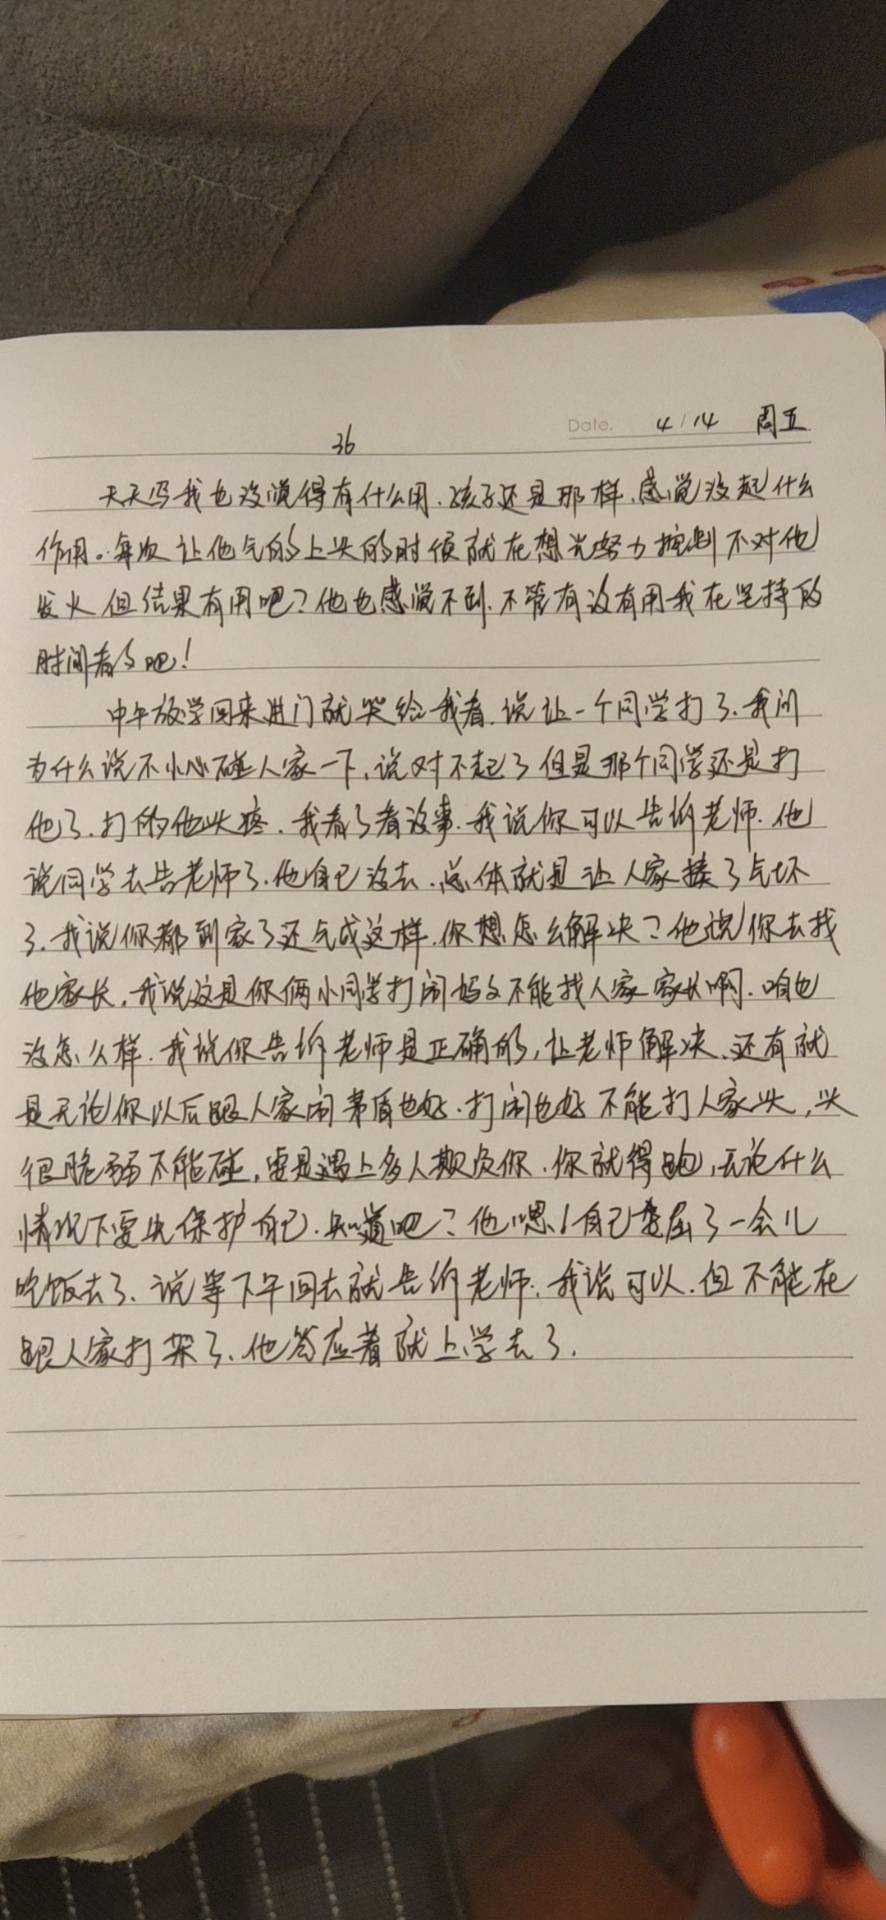 Date. 4/14 周五
36
天天写我也没觉得有什么用.孩子还是那样.感觉没起什么
作用。每次让他气的上头的时候就在想光努力控制不对他
发火但结果有用吧?他也感觉不到.不管有没有用我在坚持的
时间看看吧!
中午放学回来进门就哭给我看.说让一个同学打了.我问
为什么说不小心碰人家一下,说对不起了但是那个同学还是打
他了.打的他头疼.我看了看没事.我说你可以告诉老师.他
说同学去告老师了.他自己没去.总体就是让人家揍了气坏
了.我说你都到家了还气成这样.你想怎么解决?他说你去找
他家长,我说这是你俩小同学打闹妈妈不能找人家家长啊.咱也
没怎么样.我说你告诉老师是正确的,让老师解决.还有就
是无论你以后跟人家闹茅盾也好.打闹也好不能打人家头,头
很脆弱不能碰,要是遇上多人欺负你.你就得跑,无论什么
情况下要先保护自己.知道吧?他嗯!自己委屈了一会儿
吃饭去了.说等下午回去就告诉老师.我说可以.但不能在
跟人家打架了.他答应着就上学去了.